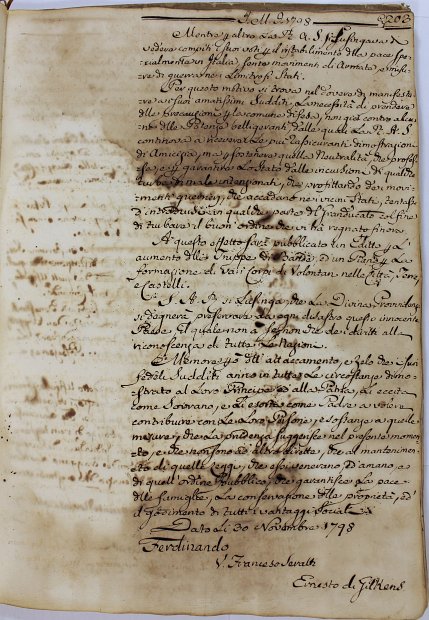 A dì 1798
203
Mentre l'altro La R. A. S. si lusingava di
vedere compiti i suoi voti p. il ristabilimento della pace spe-
cialmente in Italia, sente movimenti di Armata e misu-
re di guerra nei limitrofi Stati.
Per questo motivo si trova nel dovere di manifesta-
re ai suoi amatissimi Sudditi la necessità di prendere
delle Precauzioni p. la comune difesa, non già contro alcu-
na delle Potenze belligeranti dalle quali La R. A. S.
continova a ricevere le più rassicuranti dimostrazioni
di Amicizia, ma p. sostenere quella Neutralità, che profes-
sa, e p. garantire lo Stato dalle incursioni di qualche
turba di male intenzionati, che profittando dei movi-
menti guerrieri, che accadono nei vicini Stati, tentasse
d'introdursi in qualche parte del Granducato col fine
di turbare il buon'ordine che vi ha regnato finora
A questo effetto sarà pubblicato un Editto p. L'
aumento delle Truppe di Bande, ed un Piano p. La
formazione di vari Corpi di Volontari nelle Città, Terre,
e Castelli.
S. A. R. si lusinga, che La Divina Provvidenza
si degnerà preservare da ogni disastro questo innocente
Paese, il quale non à se non che dei diritti alla
riconoscenza di tutte le Nazioni.
E memore p. dell'attaccamento, e Zelo dei suoi
fedeli Sudditi anno in tutte le circostanze dimo-
strato al Loro Principe ed alla Patria, Li eccita
come Sovrano, e Li esorta come Padre a volere
contribuire con le Loro Persone, e sostanze a quelle
misure, che La prudenza suggerisce nel presente momen-
to, e che non sono ad altro dirette, che al manteni-
mento di quelle Leggi, che essi venerano ed amano, e
di quell'ordine Pubblico, che garantisce La pace
delle famiglie, La conservazione delle proprietà, ed
il godimento di tutti i vantaggi sociali
Dato Li 30 Novembre 1798
Ferdinando
V. Francesco Seratti
Ernesto di Gilkens